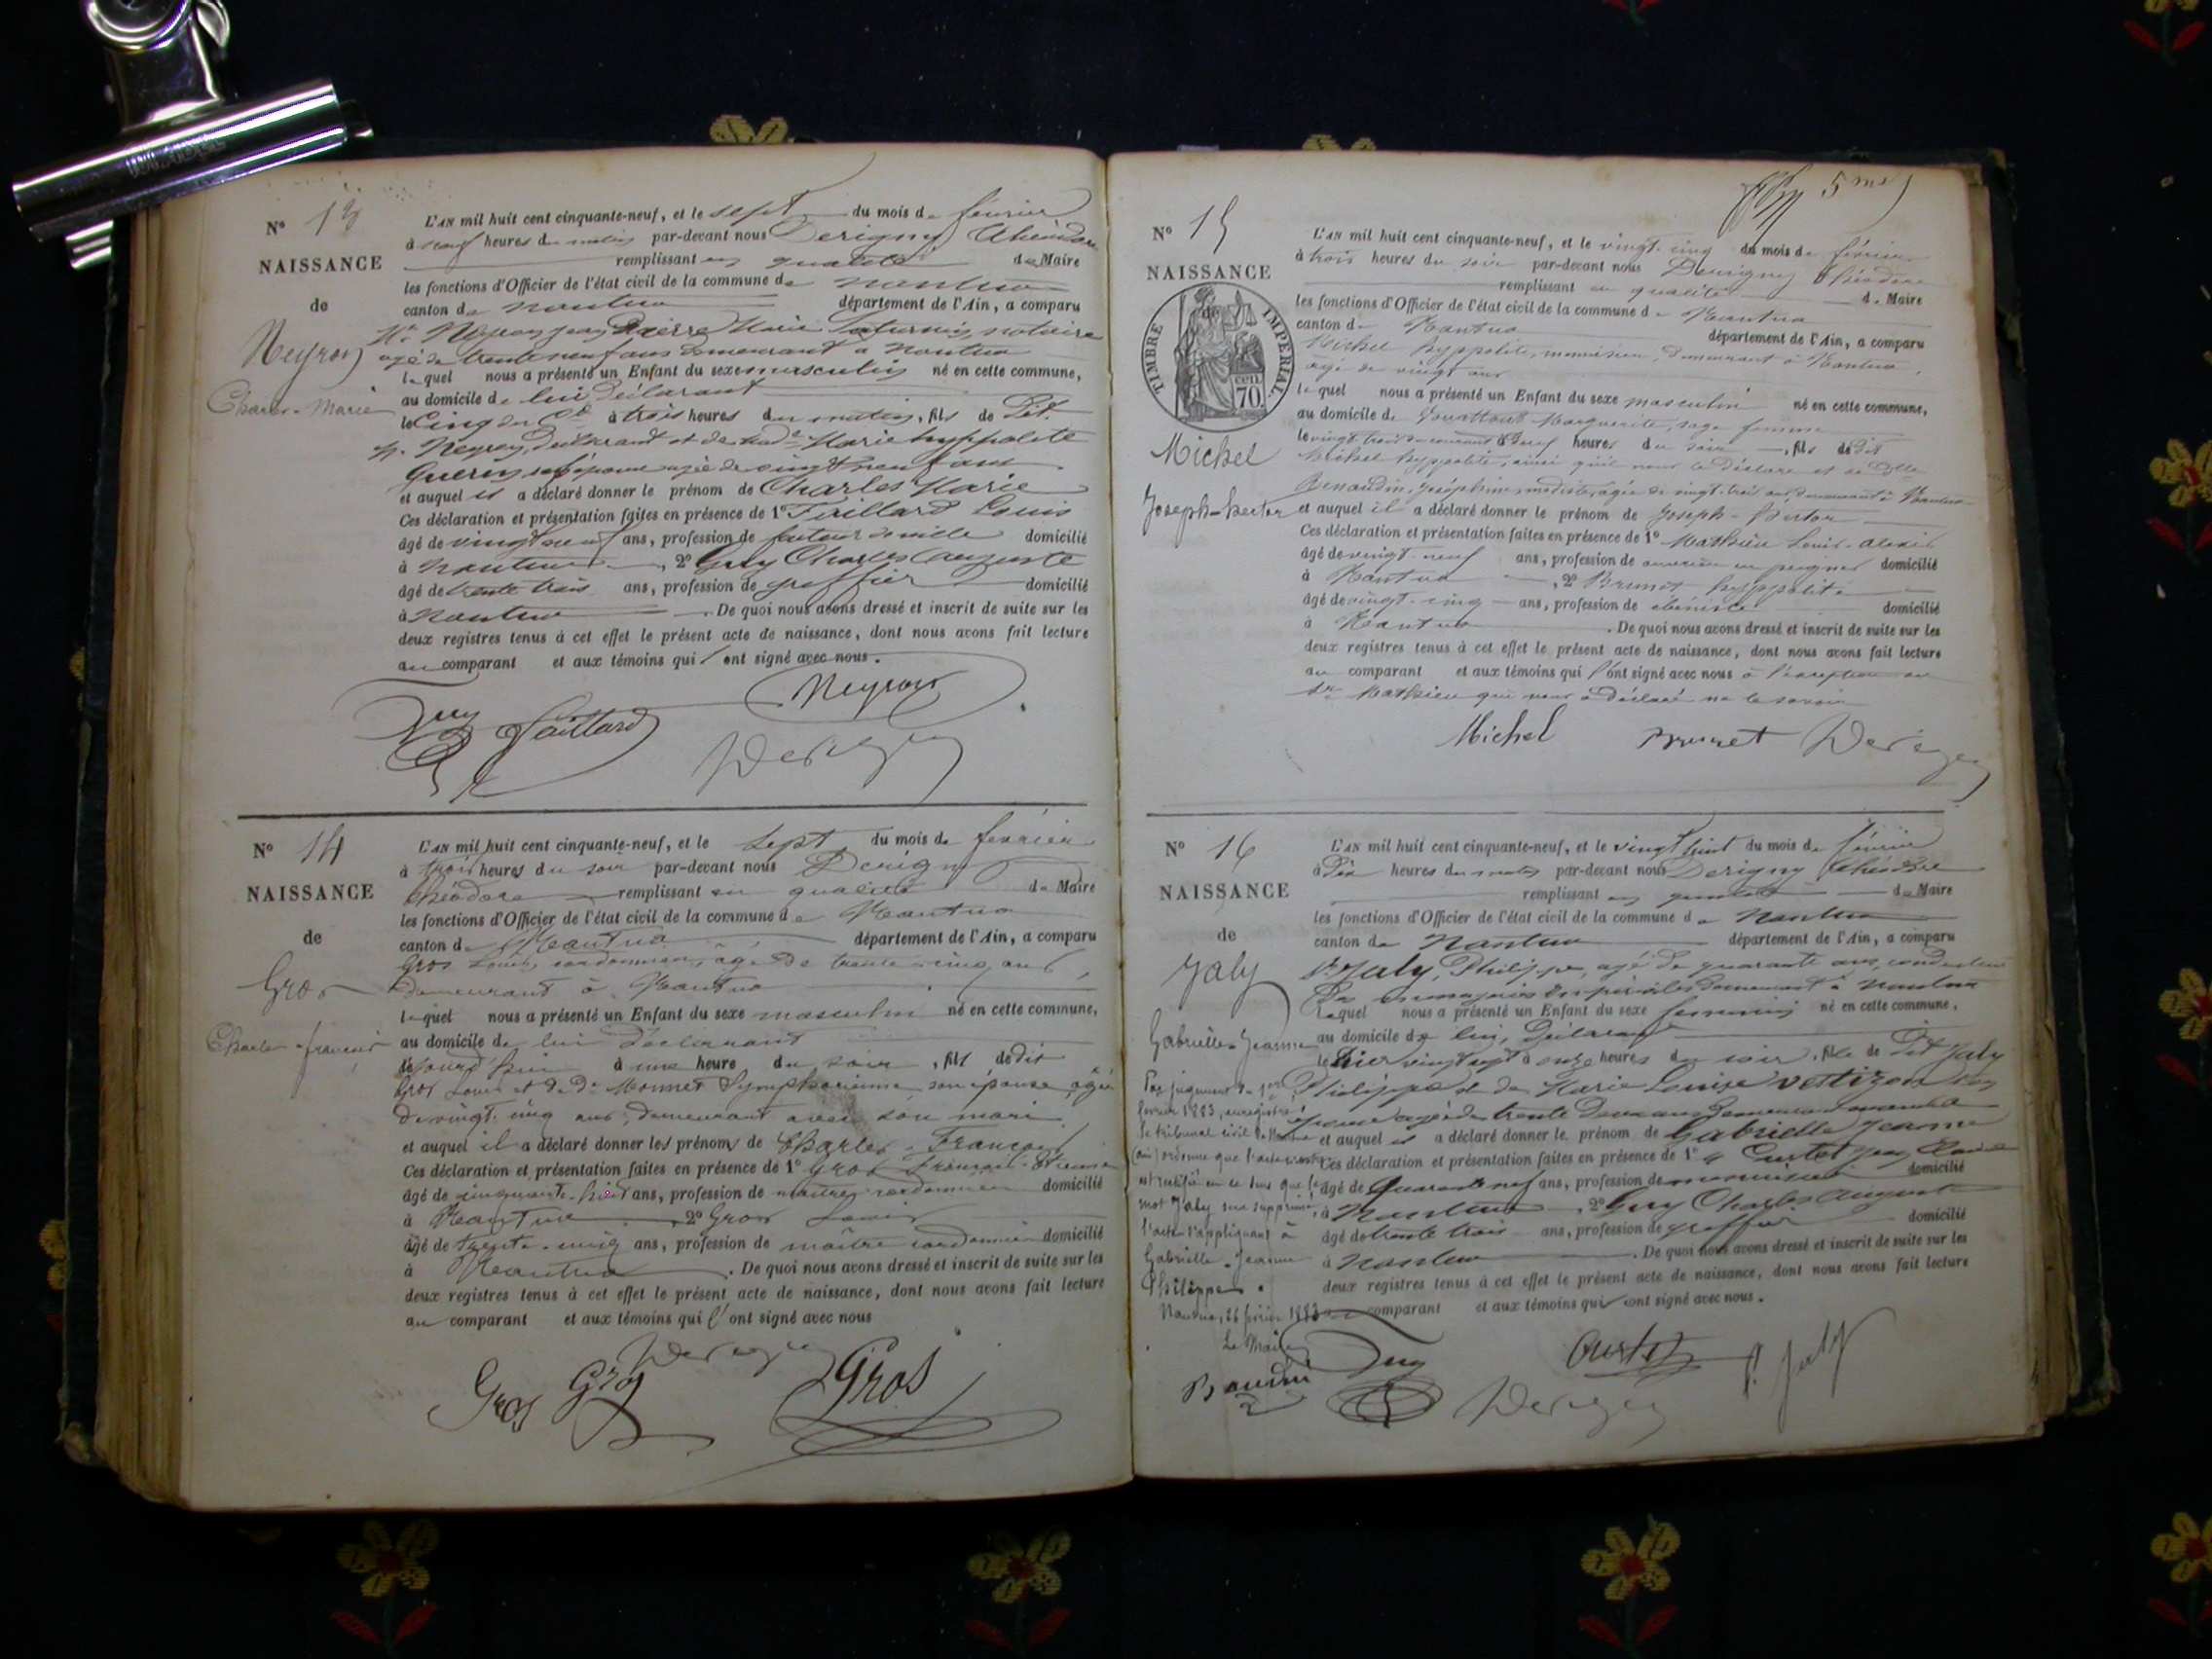 N° 13
NAISSANCE
de
Neyron
Charles-Marie
L'AN mil huit cent cinquante-neuf, et le sept du mois de février
à neuf heures du matin par-devant nous Derigny Théodore
remplissant en qualité de Maire
les fonctions d'Officier de l'état civil de la commune de nantua
canton de nantua département de l'Ain, a comparu
Mr Neyron jean Pierre Marie Saturnin, notaire
agé de trente neuf ans demeurant à nantua
lequel nous a présenté un Enfant du sexe masculin né en cette commune,
au domicile de lui Déclarant
le Cinq du Ct à trois heures du matin, fils de Dit
Neyron, Déclarant et de Marie hyppolite
Guerin son épouse agée de vingt neuf ans
et auquel il a déclaré donner le prénom de Charles Marie
Ces déclaration et présentation faites en présence de 1° Faillard Louis
âgé de vingt neuf ans, profession de facteur de ville domicilié
à nantua, 2° Guy Charles auguste
âgé de trente trois ans, profession de greffier domicilié
à nantua. De quoi nous avons dressé et inscrit de suite sur les
deux registres tenus à cet effet le présent acte de naissance, dont nous avons fait lecture
au comparant et aux témoins qui ont signé avec nous.
Neyron
Guy Faillard Derigny
N° 14
NAISSANCE
de
Gros
Charles-françois
L'AN mil huit cent cinquante-neuf, et le sept du mois de février
à trois heures du soir par-devant nous Derigny
théodore remplissant en qualité de Maire
les fonctions d'Officier de l'état civil de la commune de Nantua
canton de Nantua département de l'Ain, a comparu
Gros Louis, cordonnier, âgé de trente-cinq ans,
demeurant à Nantua
lequel nous a présenté un Enfant du sexe masculin né en cette commune,
au domicile de lui déclarant
aujourd'hui à une heure du soir, fils de dit
Gros Louis et de de Monnet Symphorienne son épouse, agée
de vingt-cinq ans, demeurant avec son mari
et auquel il a déclaré donner les prénoms de Charles-François
Ces déclaration et présentation faites en présence de 1° Gros François-Etienne
âgé de cinquante-huit ans, profession de maître cordonnier domicilié
à Nantua, 2° Gros Louis
âgé de trente-cinq ans, profession de maître cordonnier domicilié
à Nantua. De quoi nous avons dressé et inscrit de suite sur les
deux registres tenus à cet effet le présent acte de naissance, dont nous avons fait lecture
au comparant et aux témoins qui l'ont signé avec nous
Derigny
Gros Gros Gros
5me
N° 15
NAISSANCE
TIMBRE IMPÉRIAL
CEN. 70
Michel
Joseph-hector
L'AN mil huit cent cinquante-neuf, et le vingt-cinq du mois de février
à trois heures du soir par-devant nous Derigny théodore
remplissant en qualité de Maire
les fonctions d'Officier de l'état civil de la commune de Nantua
canton de Nantua département de l'Ain, a comparu
Michel hyppolite, menuisier, demeurant à Nantua,
âgé de vingt ans
lequel nous a présenté un Enfant du sexe masculin né en cette commune,
au domicile de Marguerite, sage femme
le vingt trois du courant à neuf heures du soir, fils de dit
Michel hyppolite, ainsi qu'il nous le déclare et de Dlle
Renaudin, joséphine, modiste, agée de vingt-trois ans, demeurant à Nantua
et auquel il a déclaré donner le prénom de joseph-hector
Ces déclaration et présentation faites en présence de 1° Mathieu Louis-alexis
âgé de vingt-neuf ans, profession de ouvrier en peignes domicilié
à Nantua, 2° Brunet hyppolite
âgé de vingt-cinq ans, profession de ébéniste domicilié
à Nantua. De quoi nous avons dressé et inscrit de suite sur les
deux registres tenus à cet effet le présent acte de naissance, dont nous avons fait lecture
au comparant et aux témoins qui l'ont signé avec nous à l'exception du
Sr Mathieu qui nous a déclaré ne le savoir
Michel Brunet Derigny
N° 16
NAISSANCE
de
Jaly
Gabrielle-Jeanne
Par jugement du 1er
février 1883, enregistré,
le tribunal civil de Nantua
(Ain) ordonne que l'acte ci-contre
est rectifié en ce sens que le
mot Jaly sera supprimé,
l'acte s'appliquant à
Gabrielle-Jeanne
Philippe.
Nantua, 26 février 1883
Le Maire
Baudin
L'AN mil huit cent cinquante-neuf, et le vingt huit du mois de février
à Dix heures du matin par-devant nous Derigny théodore
remplissant en qualité de Maire
les fonctions d'Officier de l'état civil de la commune de Nantua
canton de Nantua département de l'Ain, a comparu
Sr Jaly, Philippe, agé de quarante ans, conducteur
Des messageries impériales demeurant à nantua
Lequel nous a présenté un Enfant du sexe feminin né en cette commune,
au domicile de lui, Déclarant
le hier vingt sept à onze heures du soir, fille de Dit Jaly
Philippe et de Marie Louise Vestizon son
épouse agée de trente Deux ans
et auquel il a déclaré donner le prénom de Gabrielle Jeanne
Ces déclaration et présentation faites en présence de 1° Curtet jean
âgé de Quarante neuf ans, profession de menuisier domicilié
à Nantua, 2° Guy Charles auguste
âgé de trente trois ans, profession de greffier domicilié
à nantua. De quoi nous avons dressé et inscrit de suite sur les
deux registres tenus à cet effet le présent acte de naissance, dont nous avons fait lecture
au comparant et aux témoins qui ont signé avec nous.
Guy Curtet P. Jaly
Derigny